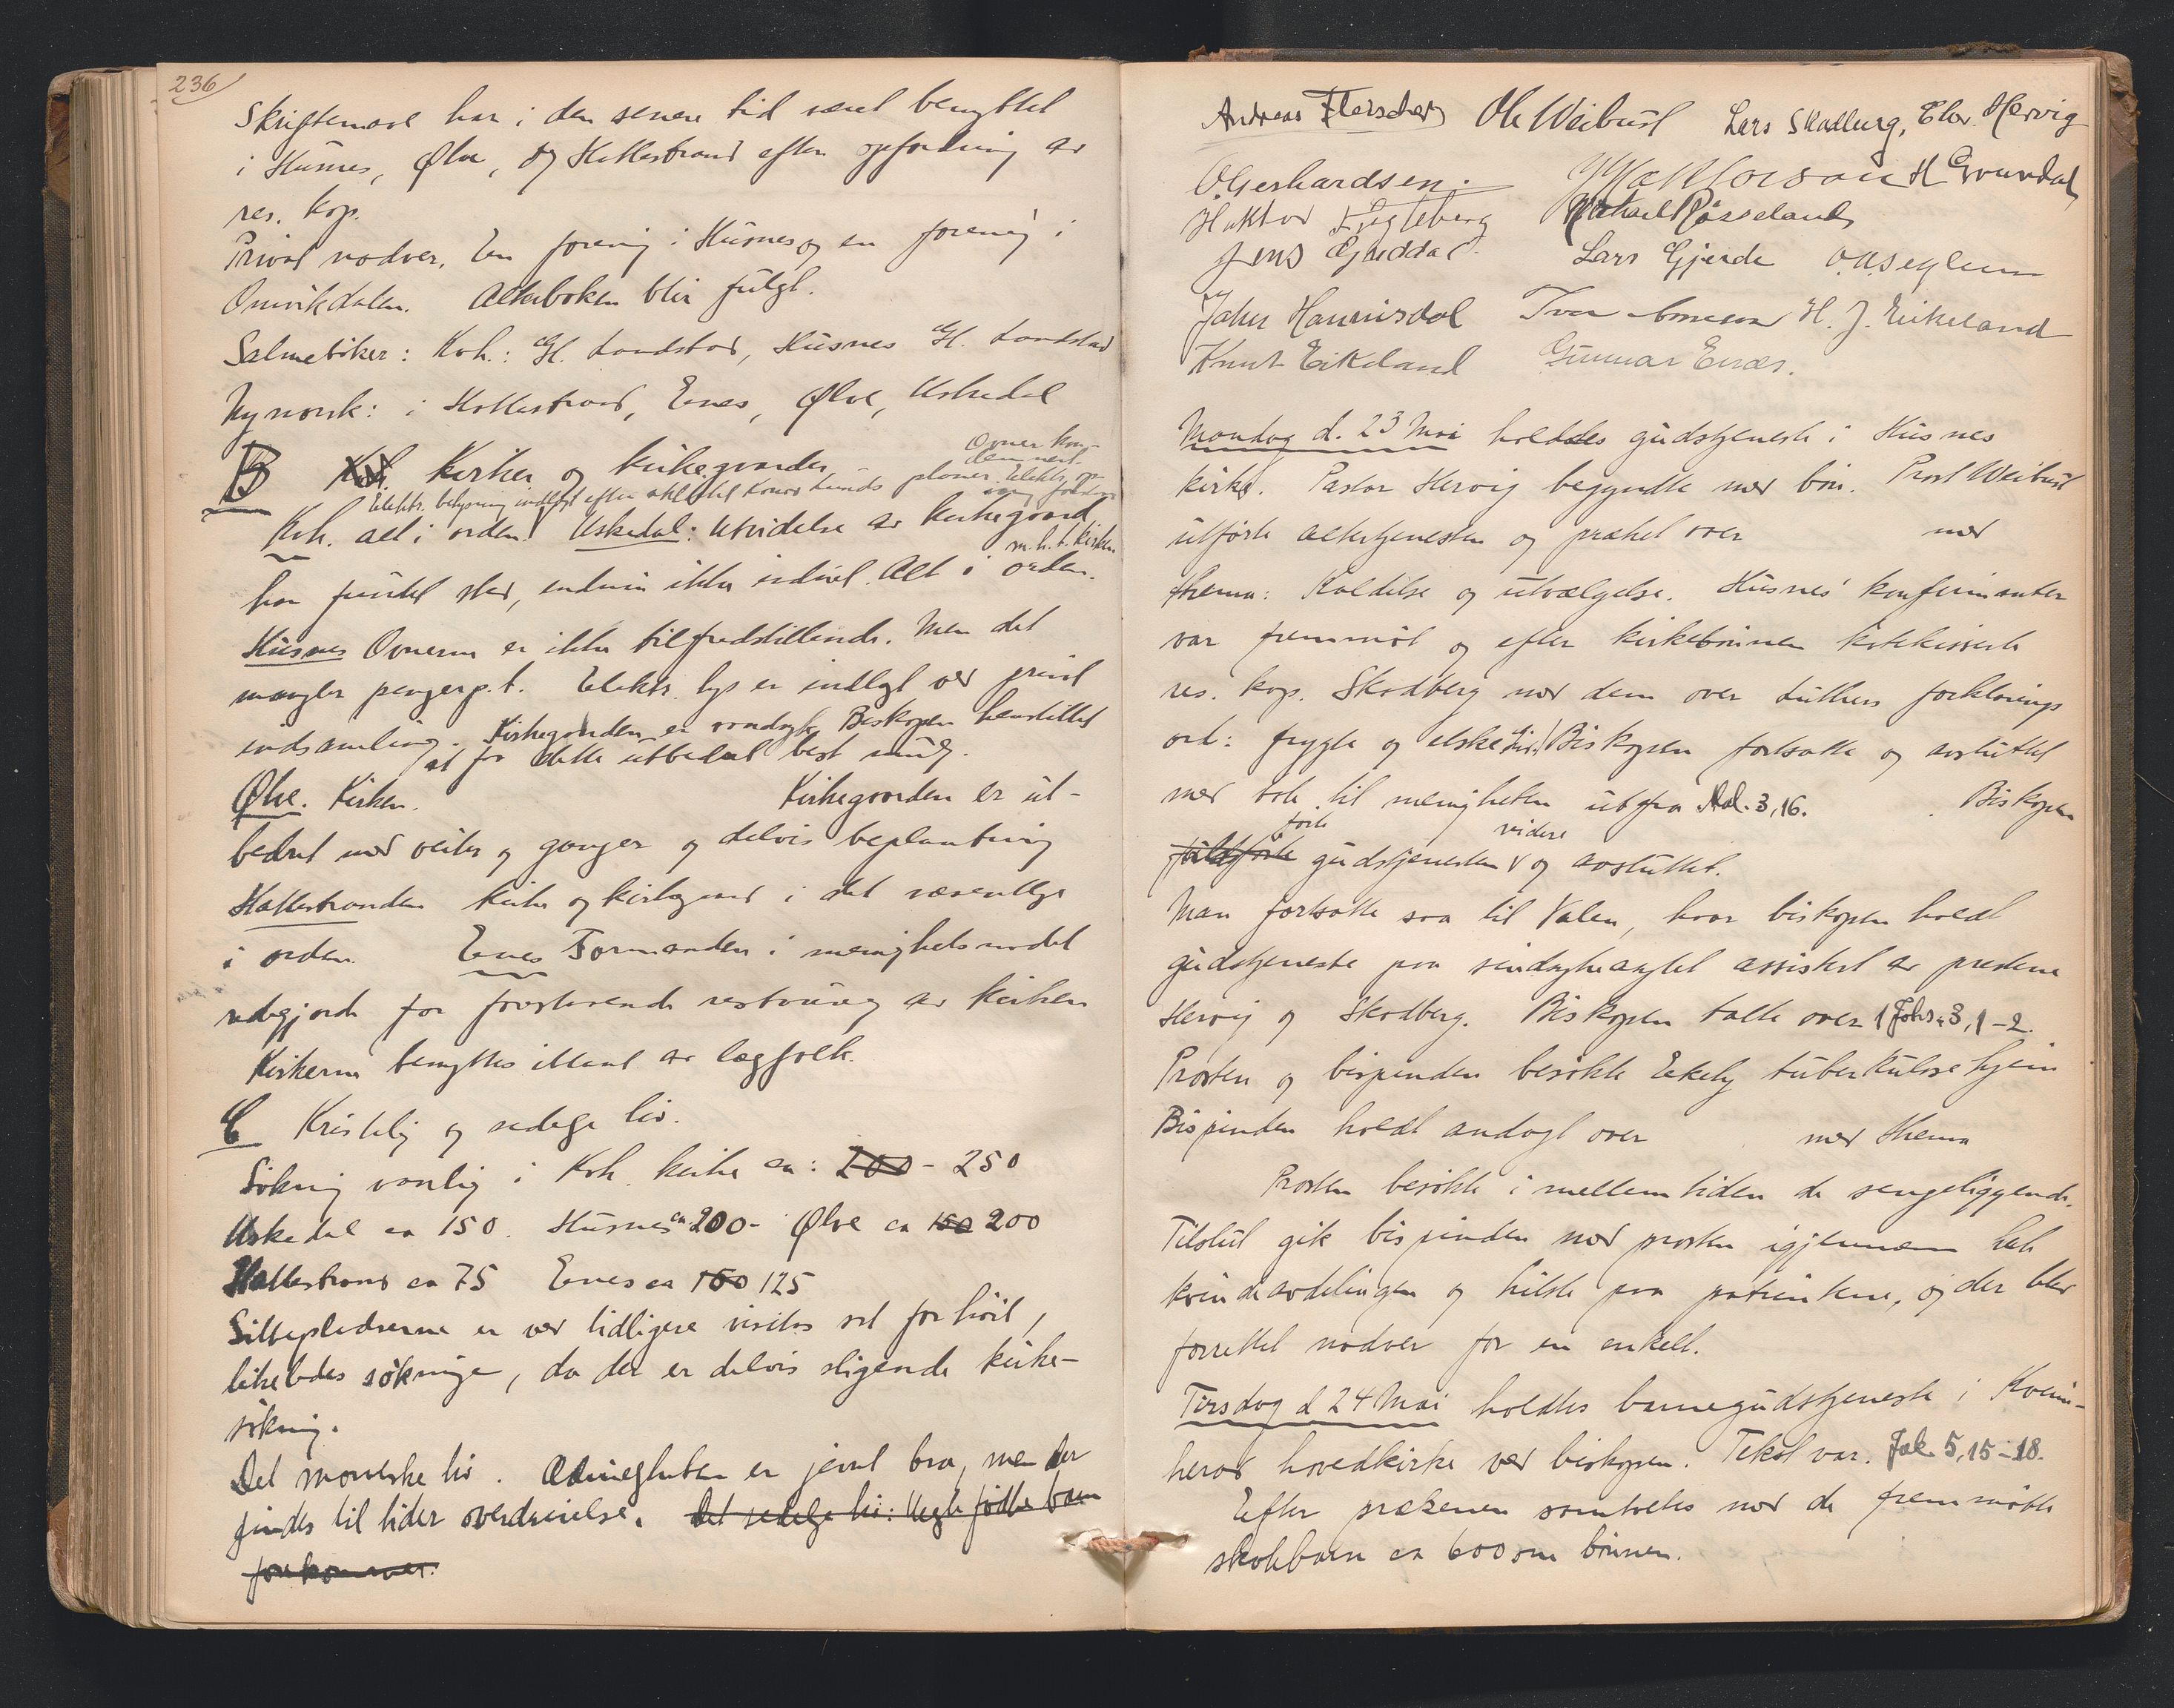 236
Skriftemaal har i den senere tid været benyttet
i Husnes, Ølve, og Hattestrand efter opfordring av
res. kap.
Privat nadver. En forening i Husnes og en forening i
Omvikdalen. Alterboken blir fulgt.
Salmebøker: Kvh.: Gl. Landstad, Husnes Gl. Landstad
Nynorsk: i Hattestrand, Enes, Ølve, Uskedal
B Kirker og kirkegaarder
Ovner kon-
demnert.
Elektr. belysning indlagt efter arkitekt Konow Lunds planer. Elektr. op-
Kvh. alt i orden! Uskedal: Utvidelse av kirkegaard
m.h.t. kirken
har fundet sted, endnu ikke indviet. Alt i orden.
Husnes Ovnerne er ikke tilfredstillende. Men det
mangler penger p.t. Elektr. lys er indlagt ved privat
indsamling. Kirkegaarden er vandsyk. Biskopen henstillet
at faa dette utbedret best mulig.
Ølve. Kirken. Kirkegaarden er ut-
bedret med veiter og ganger og delvis beplantning
Hattestranden kirke og kirkegaard i det væsentlige
i orden. Enes Formanden i menighetsraadet
redegjorde for forestaaende restaurering av kirken
Kirkerne benyttes iblant av lægfolk.
C Kristelig og sedelige liv.
Søkning vanlig i Kvh. kirke ca: 200 - 250
Uskedal ca 150. Husnes ca 200- Ølve ca 150 200
Hattestrand ca 75 Enes ca 100 125
Sittepladserne er ved tidligere visitas sat for høit,
likeledes søkninge, da det er delvis stigende kirke-
søkning.
Det moralske liv. Ædrueligheten er jevnt bra, men der
findes til tider overdrivelse. Det sedelige liv: Uegte fødte barn
forekommer.
Andreas Fleischer Ole Weibust Lars Skadberg, Elov Hervig
O Gerhardsen. H Grøndal
Michael Røsseland
Jens Guddal. Lars Gjerde
John Hannisdal H. J. Eikeland
Knut Eikeland Gunnar Enæs.
Mandag d. 23 Mai holdtes gudstjeneste i Husnes
kirke. Pastor Hervig begyndte med bøn. Prost Weibust
utførte altertjenesten og prækte over med
thema: Kaldelse og utvælgelse. Husnes' konfirmanter
var fremmøt og efter kirkebønnen katekiserte
res. kap. Skadberg med dem over Luthers forklarings
ord: frygte og elske Gud! Biskopen fortsatte og avsluttet
med tale til menigheten ut fra Aal. 3,16. Biskopen
førte videre
fuldførte gudstjenesten og avsluttet.
Man fortsatte saa til Valen, hvor biskopen holdt
gudstjeneste paa sindsykeasylet assistert av presterne
Hervig og Skadberg. Biskopen talte over 1 Johs. 3, 1-2.
Prosten og bispinden besøkte Eikely tuberkulosehjem
Bispinden holdt andagt over med thema
Prosten besøkte i mellemtiden de sengeliggende.
Tilslut gik bispinden med prosten igjennem hele
kvindeavdelingen og hilste paa patientene, og der blev
forrettet nadver for en enkelt.
Tirsdag d 24 Mai holdtes barnegudstjeneste i Kvin-
herad hovedkirke ved biskopen. Tekst var. Jak. 5, 15-18.
Efter prækenen samtaltes med de fremmøtte
skolebarn ca 600 om bønnen.